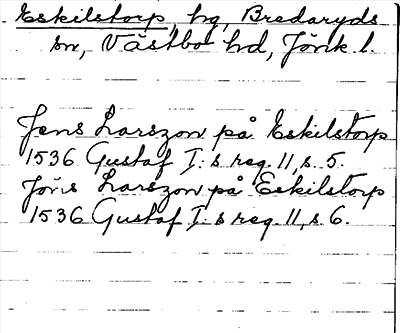 Eskilstorp, hg, Bredaryds
sn, Västbo hd, Jönk. l.
Jens Larszon på Eskilstorp
1536 Gustaf I:s reg. 11, s. 5.
Jöns Larszon på Eskilstorp
1536 Gustaf I:s reg. 11, s. 6.